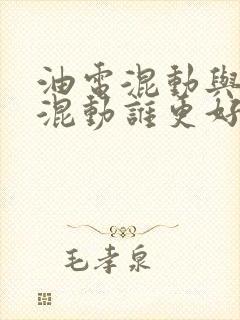 油電混動與
混動誰更好
毛孝泉